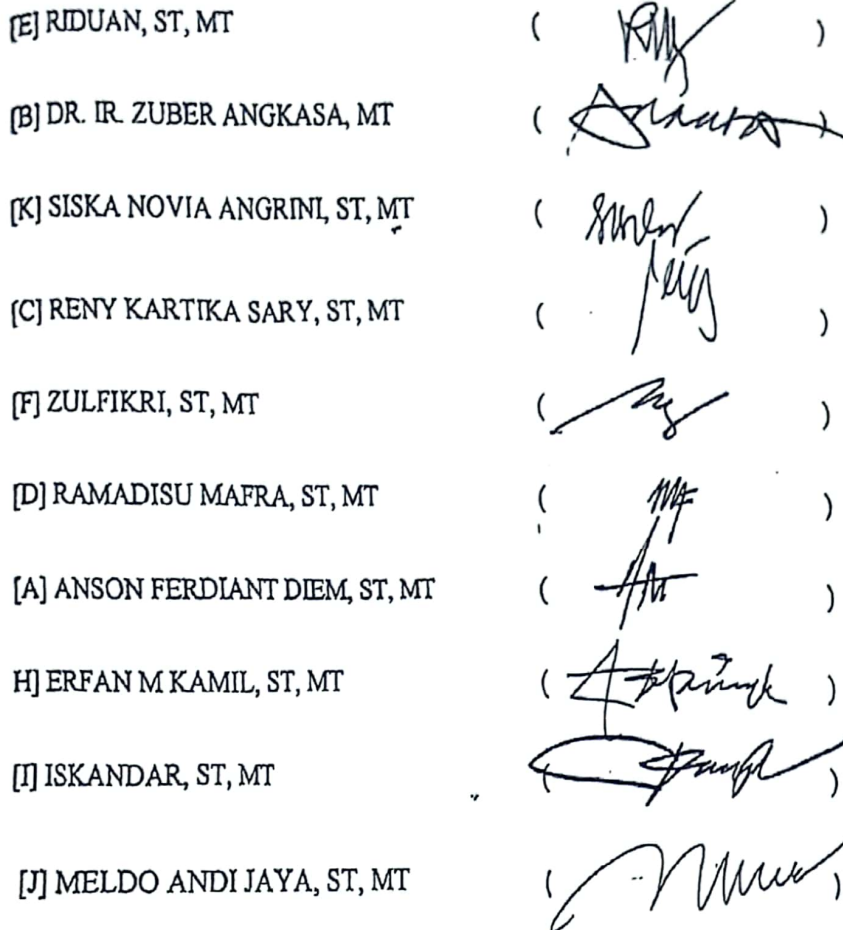 [E] RIDUAN, ST, MT ( )
[B] DR. IR. ZUBER ANGKASA, MT ( )
[K] SISKA NOVIA ANGRINI, ST, MT ( )
[C] RENY KARTIKA SARY, ST, MT ( )
[F] ZULFIKRI, ST, MT ( )
[D] RAMADISU MAFRA, ST, MT ( )
[A] ANSON FERDIANT DIEM, ST, MT ( )
H] ERFAN M KAMIL, ST, MT ( )
[I] ISKANDAR, ST, MT ( )
[J] MELDO ANDI JAYA, ST, MT ( )